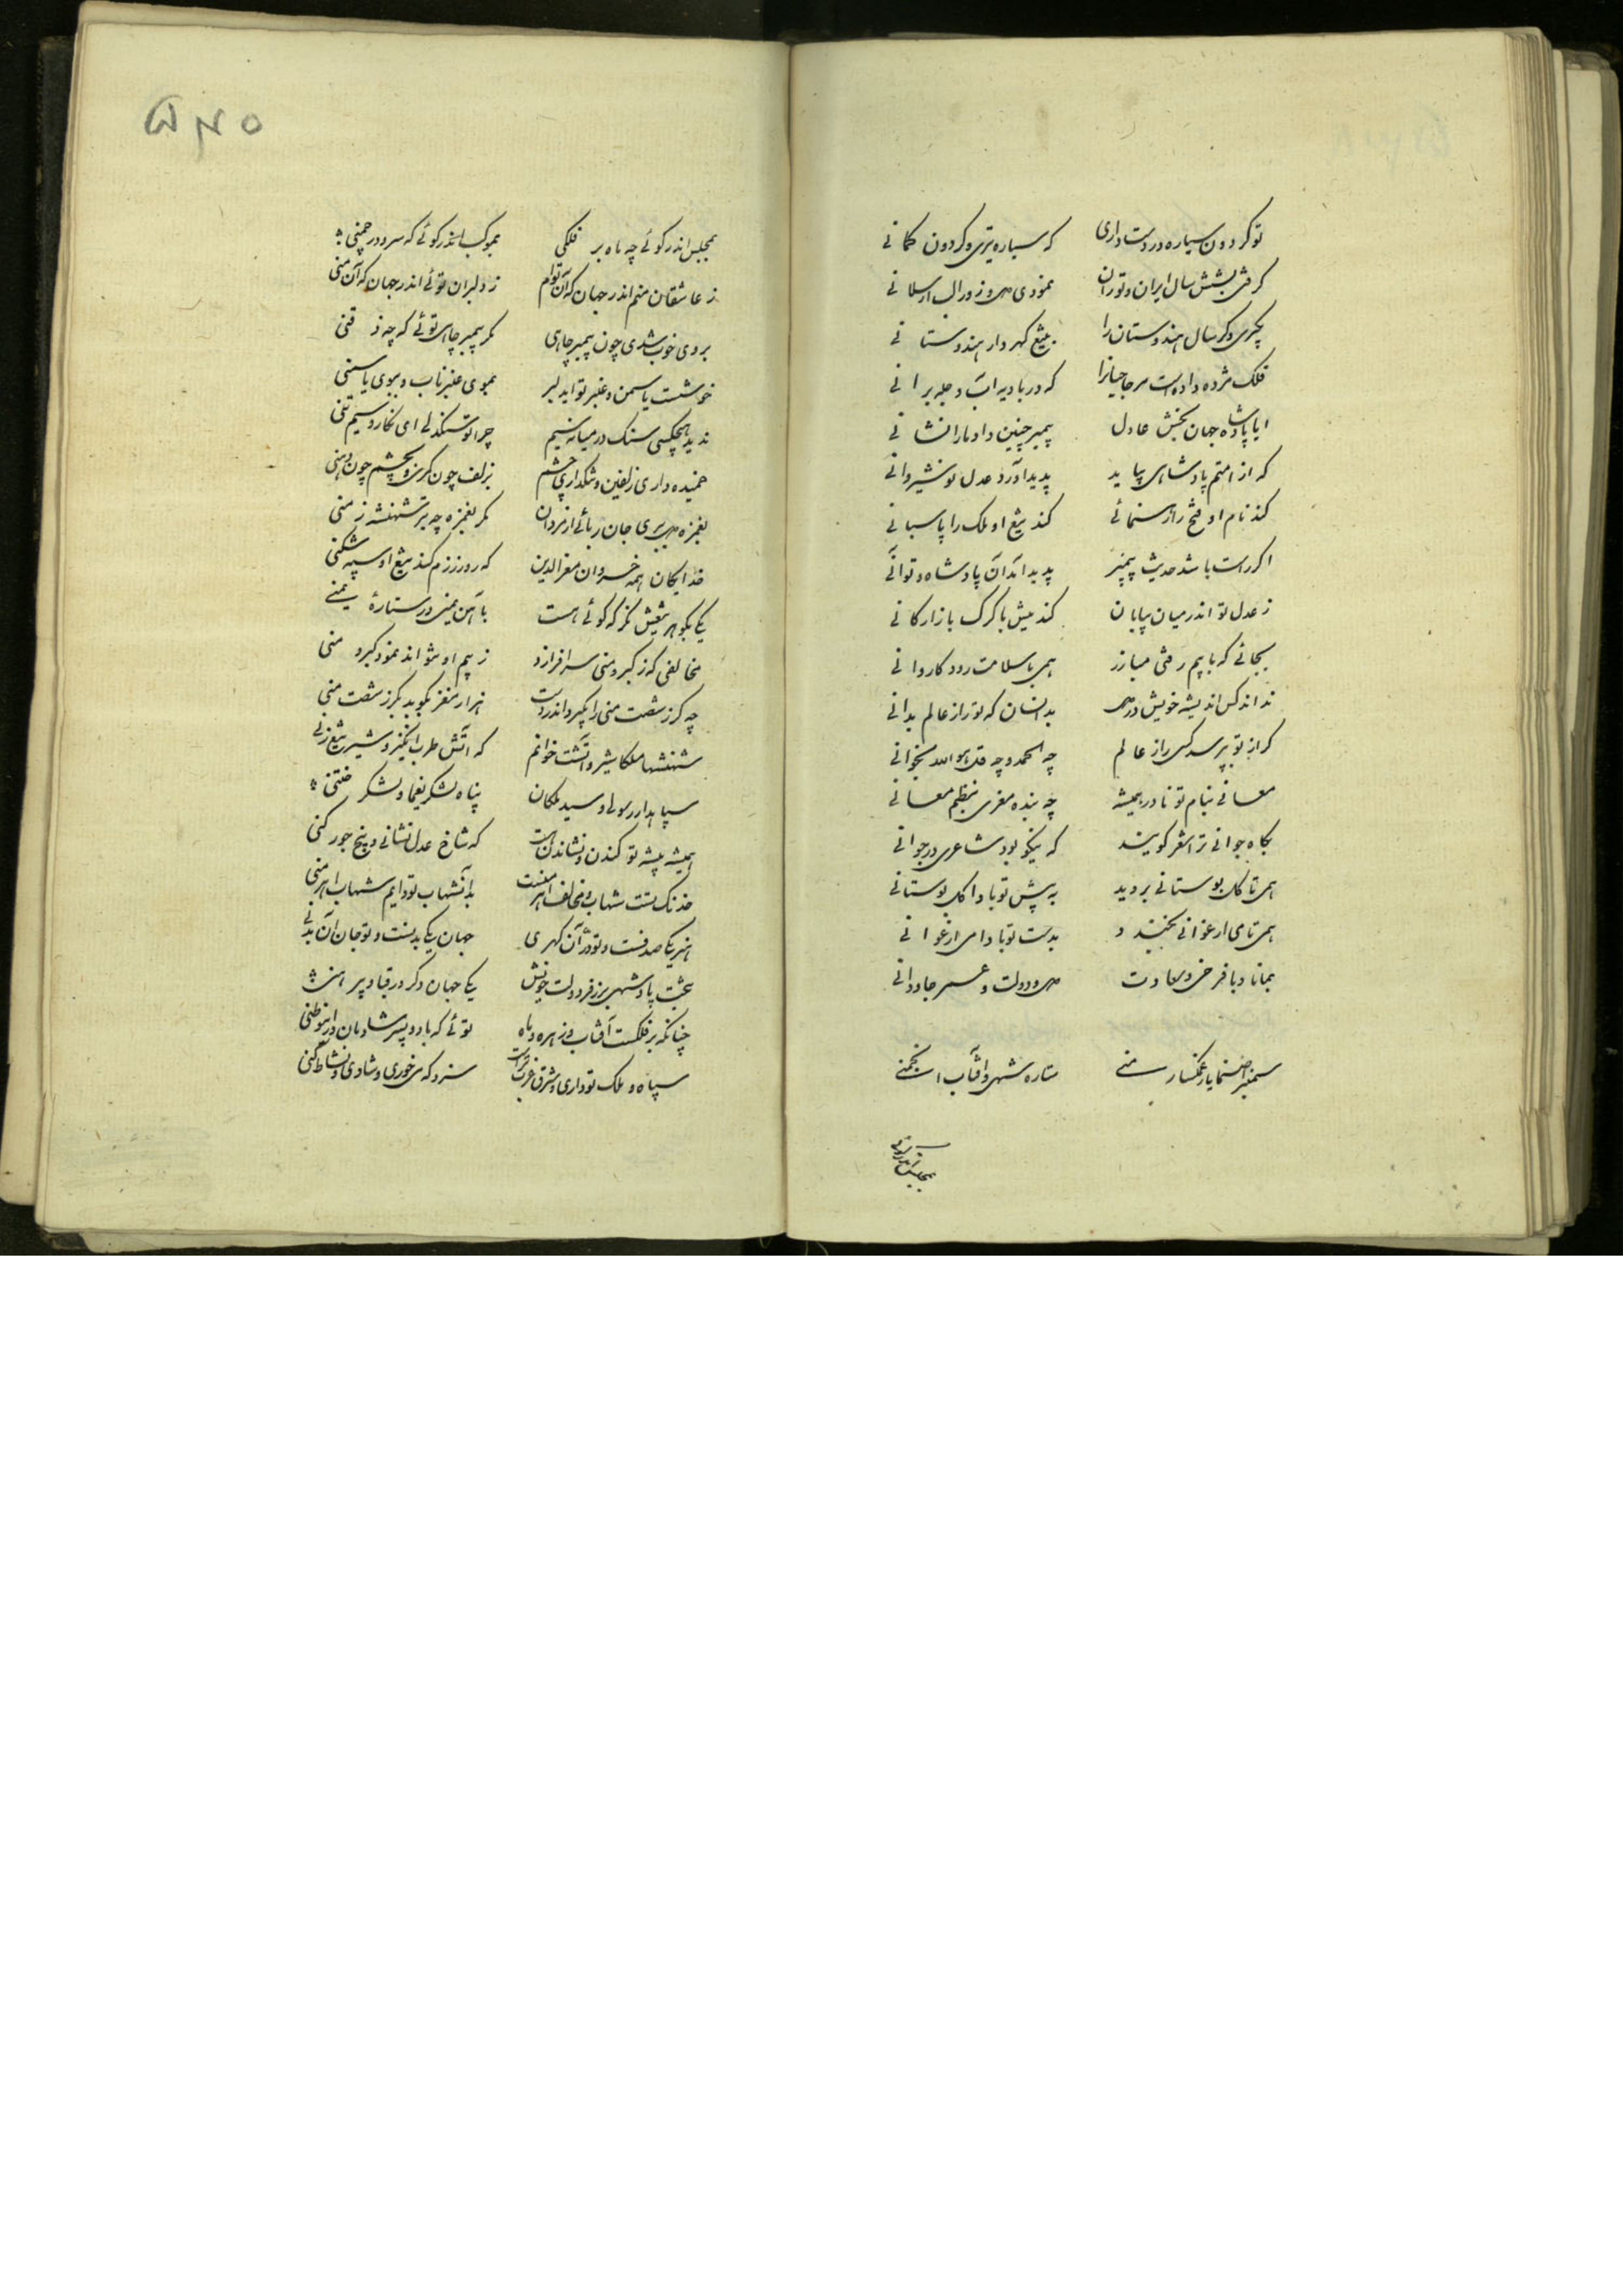 تو کردون سیاره در دست داری که سیاره تیری و کردون کمانی
کرفتی بشش سال ایران و توران نمودی هنر و زور الب ارسلانی
بکیری دکر سال هندوستان را بتیغ کهردار هندوستانی
فلک مژده داده است مر حاجیانرا که در بادیه آب دجله برانی
ایا پادشاه جهان بخش عادل پیمبر چنین داد ما را نشانی
که از امتم پادشاهی بیاید پدید آورد عدل نوشیروانی
کند نام او فتح را رهنمائی کند تیغ او ملک را پاسبانی
اکر راست باشد حدیث پیمبر پدید آمد آن پادشاه و تو آنی
ز عدل تو اندر میان بیابان کند میش با کرک بازارکانی
بجائی که با بیم رفتی مبارز همی با سلامت رود کاروانی
نداند کس اندیشه خویش در دل بدانسان که تو راز عالم بدانی
کر از تو بپرسد کسی راز عالم چه الحمد و چه قل هو الله بخوانی
معانی بنام تو نادر همیشه چه بنده معزی بنظم معانی
بکاه جوانی ترا شعر کویند که نیکو بود شاعری در جوانی
همی تا کل بوستانی بروید به پیش تو بادا کل بوستانی
همی تا می ارغوانی بخنبد بدست تو بادا می ارغوانی
بمانا دبا فرخی و سعادت دولت و عمر جاودانی
سمنبرا صنما یار غمکسار منی ستاره شهی و آفتاب انجمنی
بمجلس اندر کوئی
بمجلس اندر کوئی چه ماه بر فلکی بموکب اندر کوئی که سرو در چمنی
ز عاشقان منم اندر جهان که آن توام ز دلبران توئی اندر جهان که آن منی
بروی خوب شدی چون پیمبر چاهی مکر پیمبر چاهی توئی که چه ذقنی
خوشست یاسمن و عنبر تو ای دلبر بموی عنبر ناب و ببوی یاسمنی
ندید هیچکسی سنک در میانه سیم چرا تو سنکدلی ای نکار و سیم تنی
خمیده داری زلفین و تنک داری چشم بزلف چون کرهی و بچشم چون دهنی
بغمزه می ببری جان ربائی از مردان مکر بغمزه چه تیر شهنشه زمنی
خدایکان همه خسروان معزالدین که روز رزم کند تیغ او سپه شکنی
یکی بکوهر تیغش نکر که کوئی هست بآهن یمنی در ستاره یمنی
مخالفی که ز کبر و منی سر افرازد ز بیم او نتواند نمود کبر و منی
چه کرز شصت منی را بکیرد اندر دست هزار مغز بکوبد بکرز شصت منی
شهنشها ملکا شیر و آتشت خوانم که آتش طرب انکیز و شیر تیغ زنی
سپاهدار رسولی و سید ملکان پناه لشکر یغما و لشکر ختنی
همیشه پیشه تو کندن و نشاندن هست که شاخ عدل نشانی و بیخ جور کنی
خدنک تست شهاب و مخالف اهرمنست بدان شهاب تو دایم شهاب اهرمنی
هنر یکی صدفست و تو در آن کهری جهان یکی بدنست و تو جان آن بدنی
بتخت پادشهی بر ز فر دولت خویش یکی جهان دکر در قبا و پیرهنی
چنانکه بر فلکست آفتاب و زهره و ماه توئی که با دو پسر شادمان در این وطنی
سپاه و ملک تو داری و شرق و غرب تراست سزد که می خوری و شادی و نشاط کنی